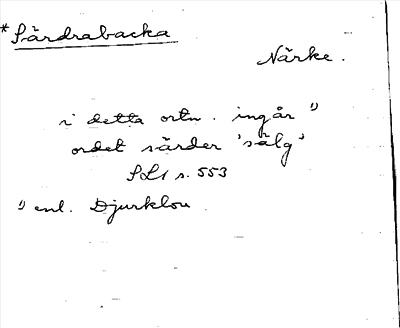 * Särdrabacka
Närke.
i detta ortn. ingår ¹⁾
ordet särder 'sälg'
SL1 s. 553
¹⁾ enl. Djurklou.